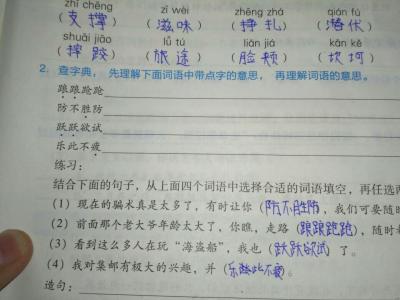 zhī chēng zī wèi zhēng zhá qián fú
(支撑) (滋味) (挣扎) (潜伏)
shuāi jiāo lǚ tú liǎn jiá kǎn kě
(摔跤) (旅途) (脸颊) (坎坷)
2. 查字典，先理解下面词语中带点字的意思，再理解词语的意思。
踉踉跄跄
防不胜防
跃跃欲试
乐此不疲
练习：
结合下面的句子，从上面四个词语中选择合适的词语填空，再任选两
(1) 现在的骗术真是太多了，有时让你(防不胜防，我们可要随时
(2) 前面那个老大爷年龄太大了，你瞧，走路(踉踉跄跄)，随时
(3) 看到这么多人在玩“海盗船”，我也(跃跃欲试)了。
(4) 我对集邮有极大的兴趣，并(乐此不疲)。
造句：